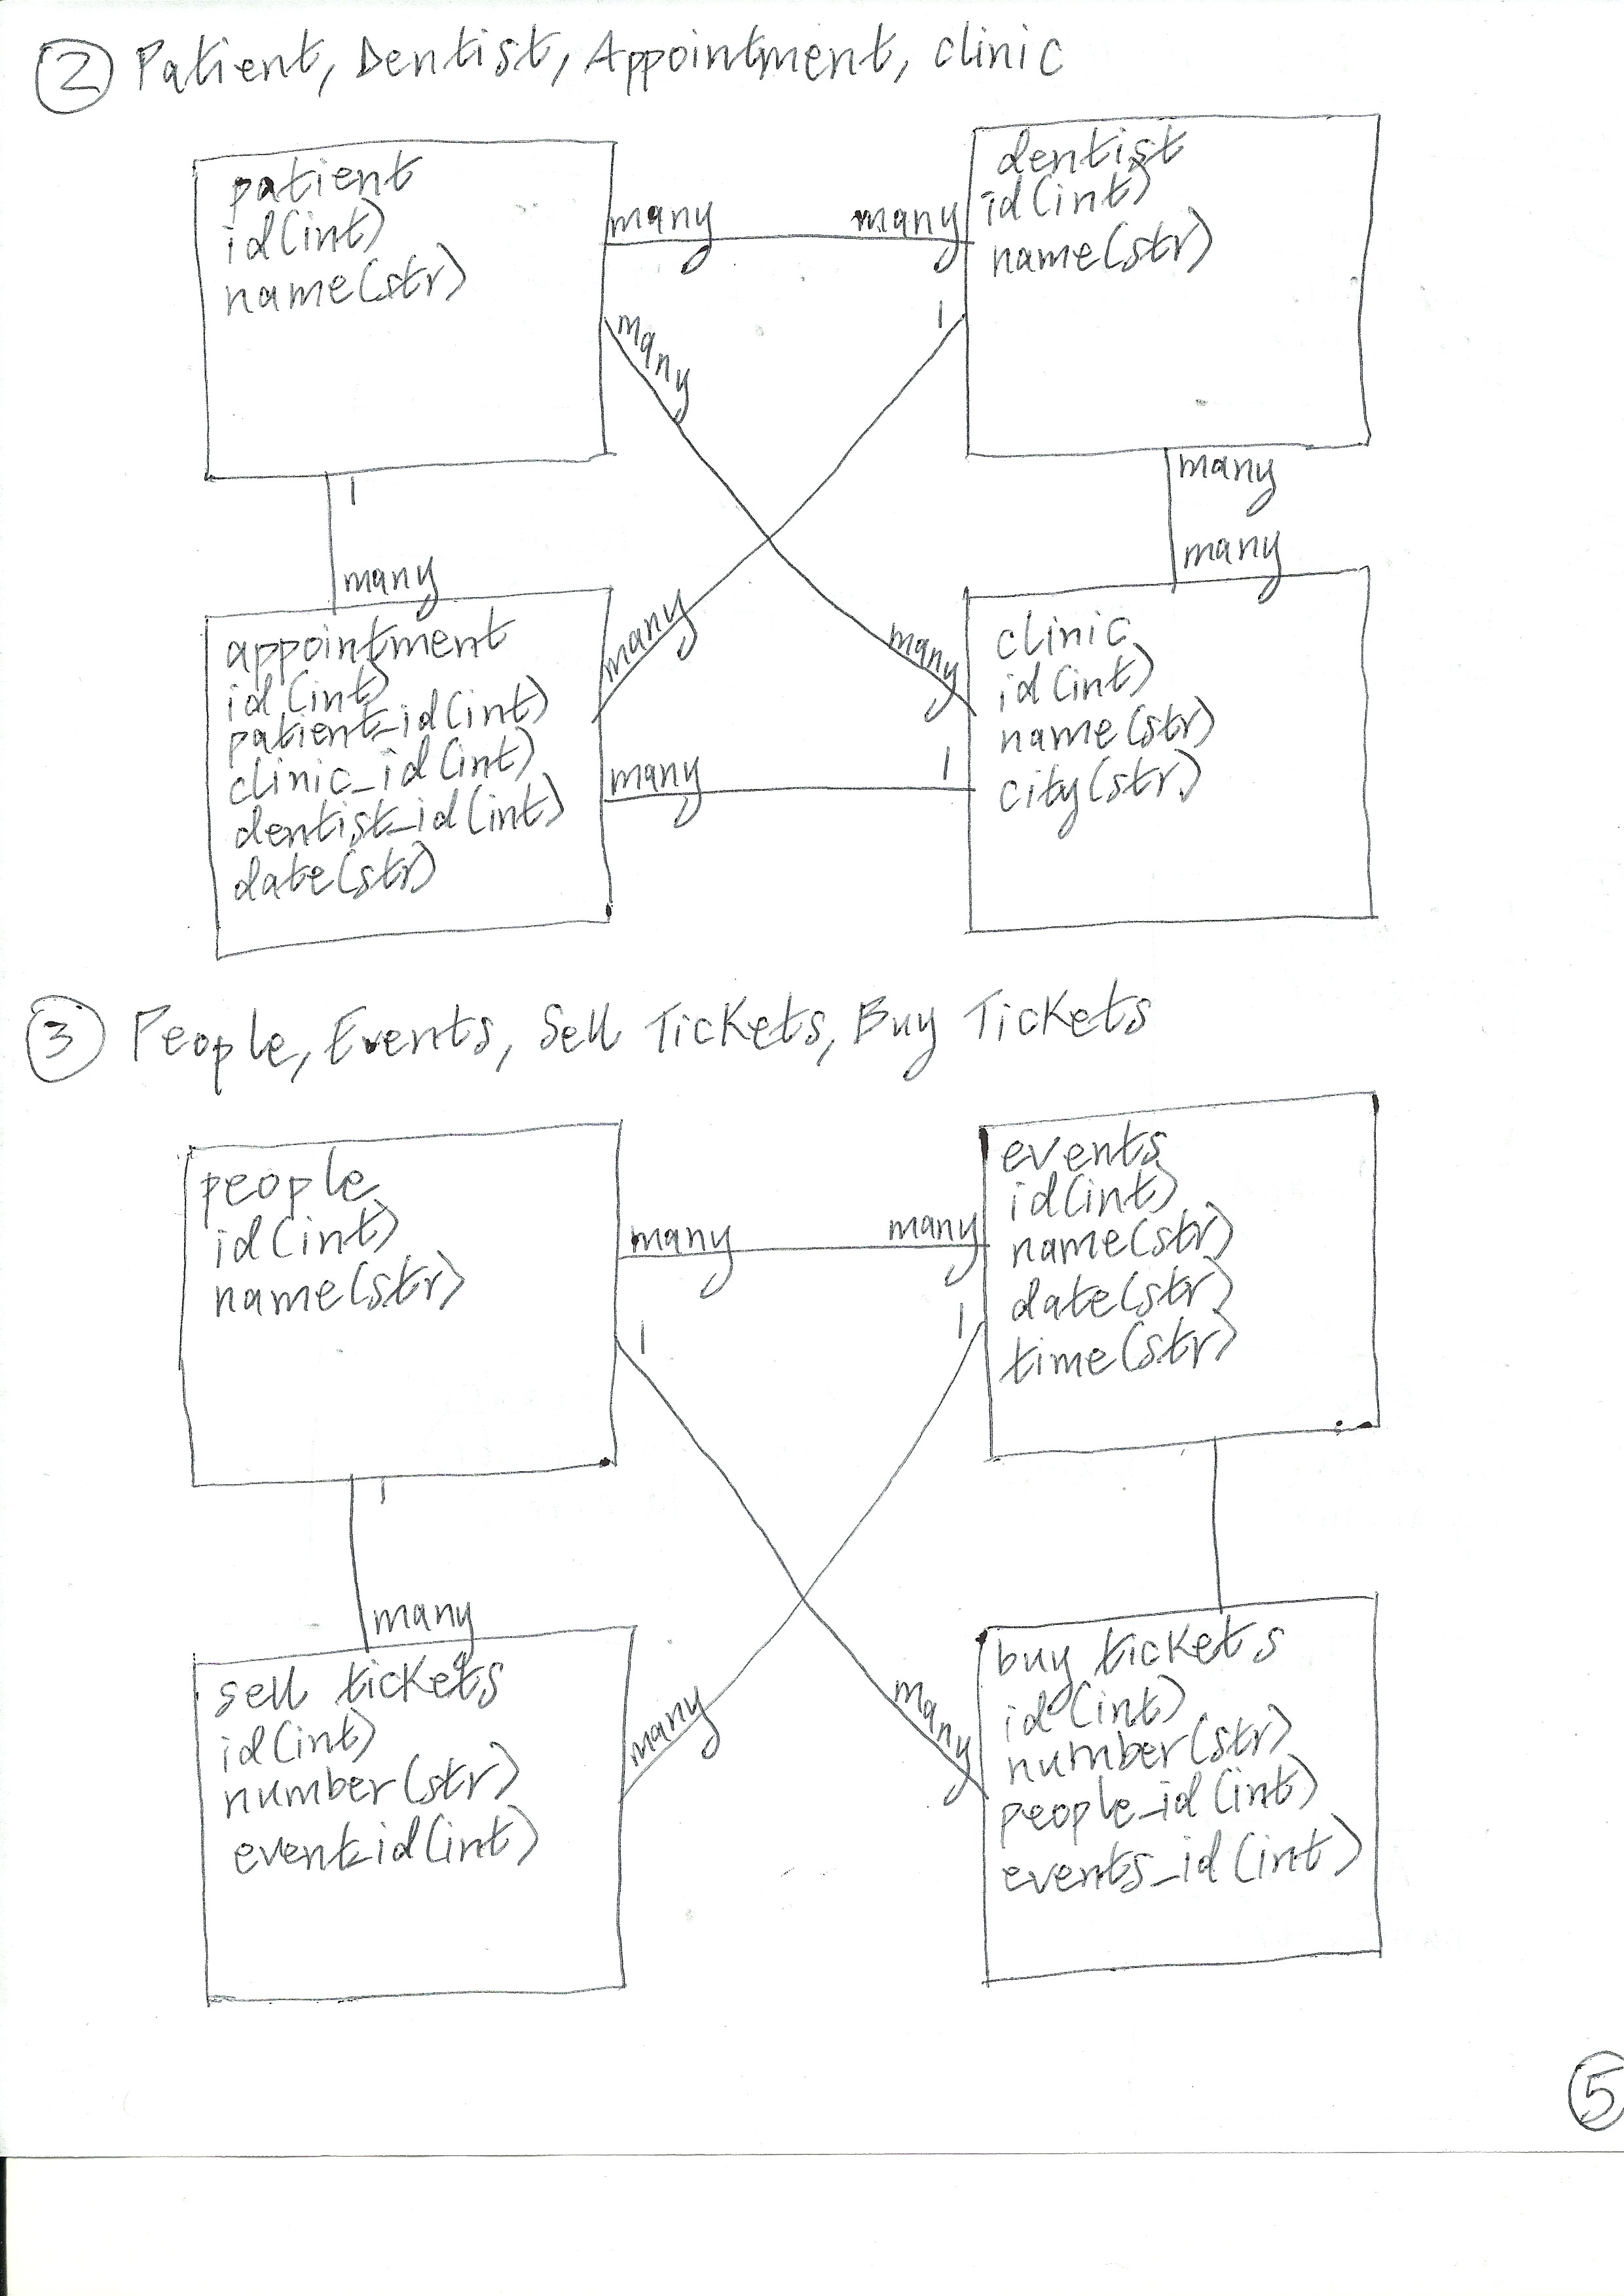 ② Patient, Dentist, Appointment, clinic
patient
id(int)
name(str)
many many
dentist
id(int)
name(str)
many
1
1
many
many
many
appointment
id(int)
patient_id(int)
clinic_id(int)
dentist_id(int)
date(str)
many
many
many 1
clinic
id(int)
name(str)
city(str)
③ People, Events, Sell Tickets, Buy Tickets
people
id(int)
name(str)
many many
events
id(int)
name(str)
date(str)
time(str)
1
1
1
many
sell tickets
id(int)
number(str)
event_id(int)
many
many
buy tickets
id(int)
number(str)
people_id(int)
events_id(int)
⑤